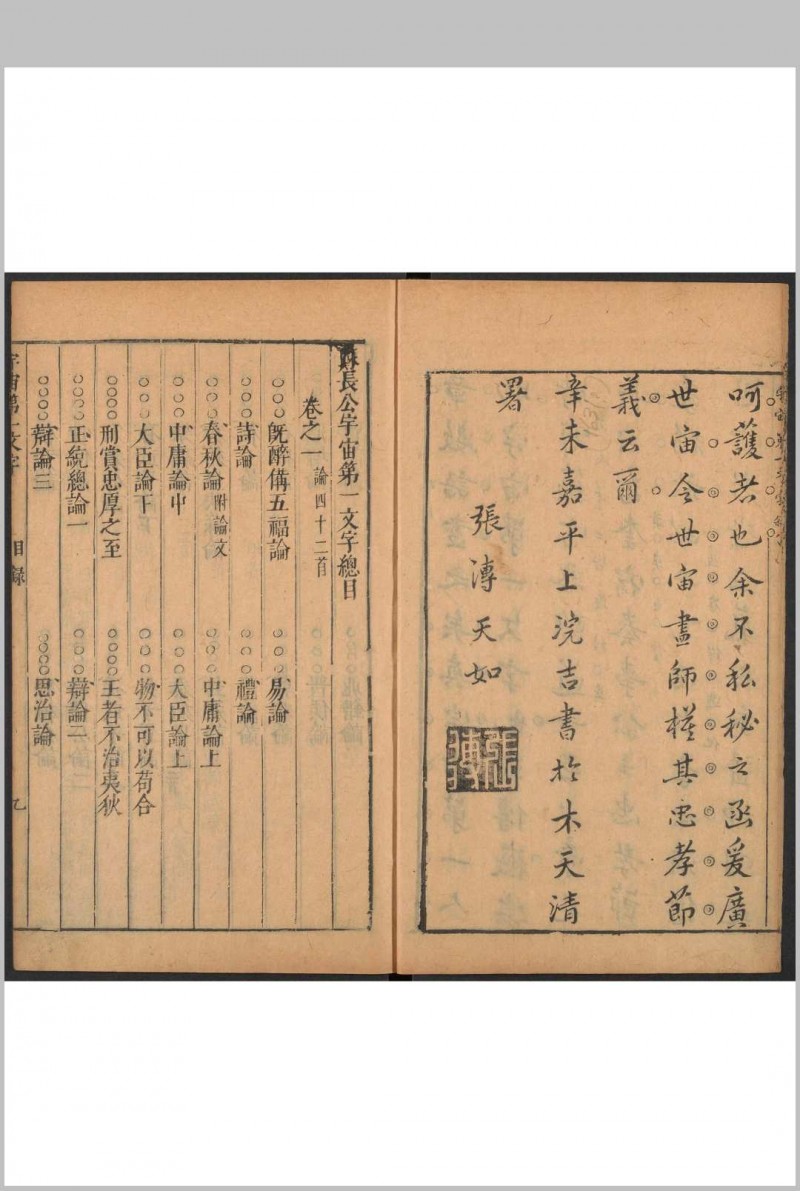 呵護者也余不私秘之函爰廣
世宙令世宙盡師樣其忠孝節
義云爾
辛未嘉平上浣吉書於木天清
署
張溥天如
張溥
蘇長公宇宙第一文字總目
卷之一 論四十二首
○○○既醉備五福論
○○○○易論
○○○○詩論
○○○○禮論
○○○○春秋論附論文
○○○○中庸論上
○○○○中庸論中
○○○○大臣論上
○○○○大臣論下
○○○○物不可以苟合
○○○○刑賞忠厚之至
○○○○王者不治夷狄
○○○○正統總論一
○○○○辯論二
○○○○辯論三
○○○○思治論
宇宙第一文字 目錄 乙